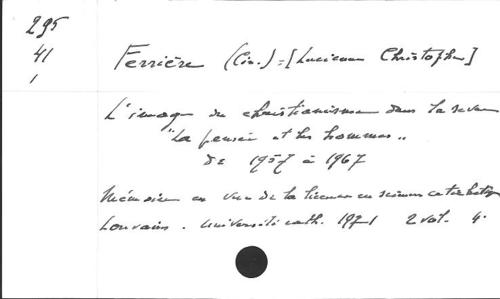 295
41
1
Ferrière (Cin.) = [Lucienne Christophe]
L'image du christianisme dans la revue
"La pensée et les hommes"
de 1957 à 1967
Mémoire en vue de la licence en sciences catéchétiq
Louvain. Université cath. 1971 2 vol. 4.